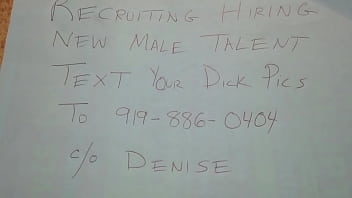 RECRUITING HIRING
NEW MALE TALENT
TEXT YOUR DICK PICS
TO 919-886-0404
c/o DENISE